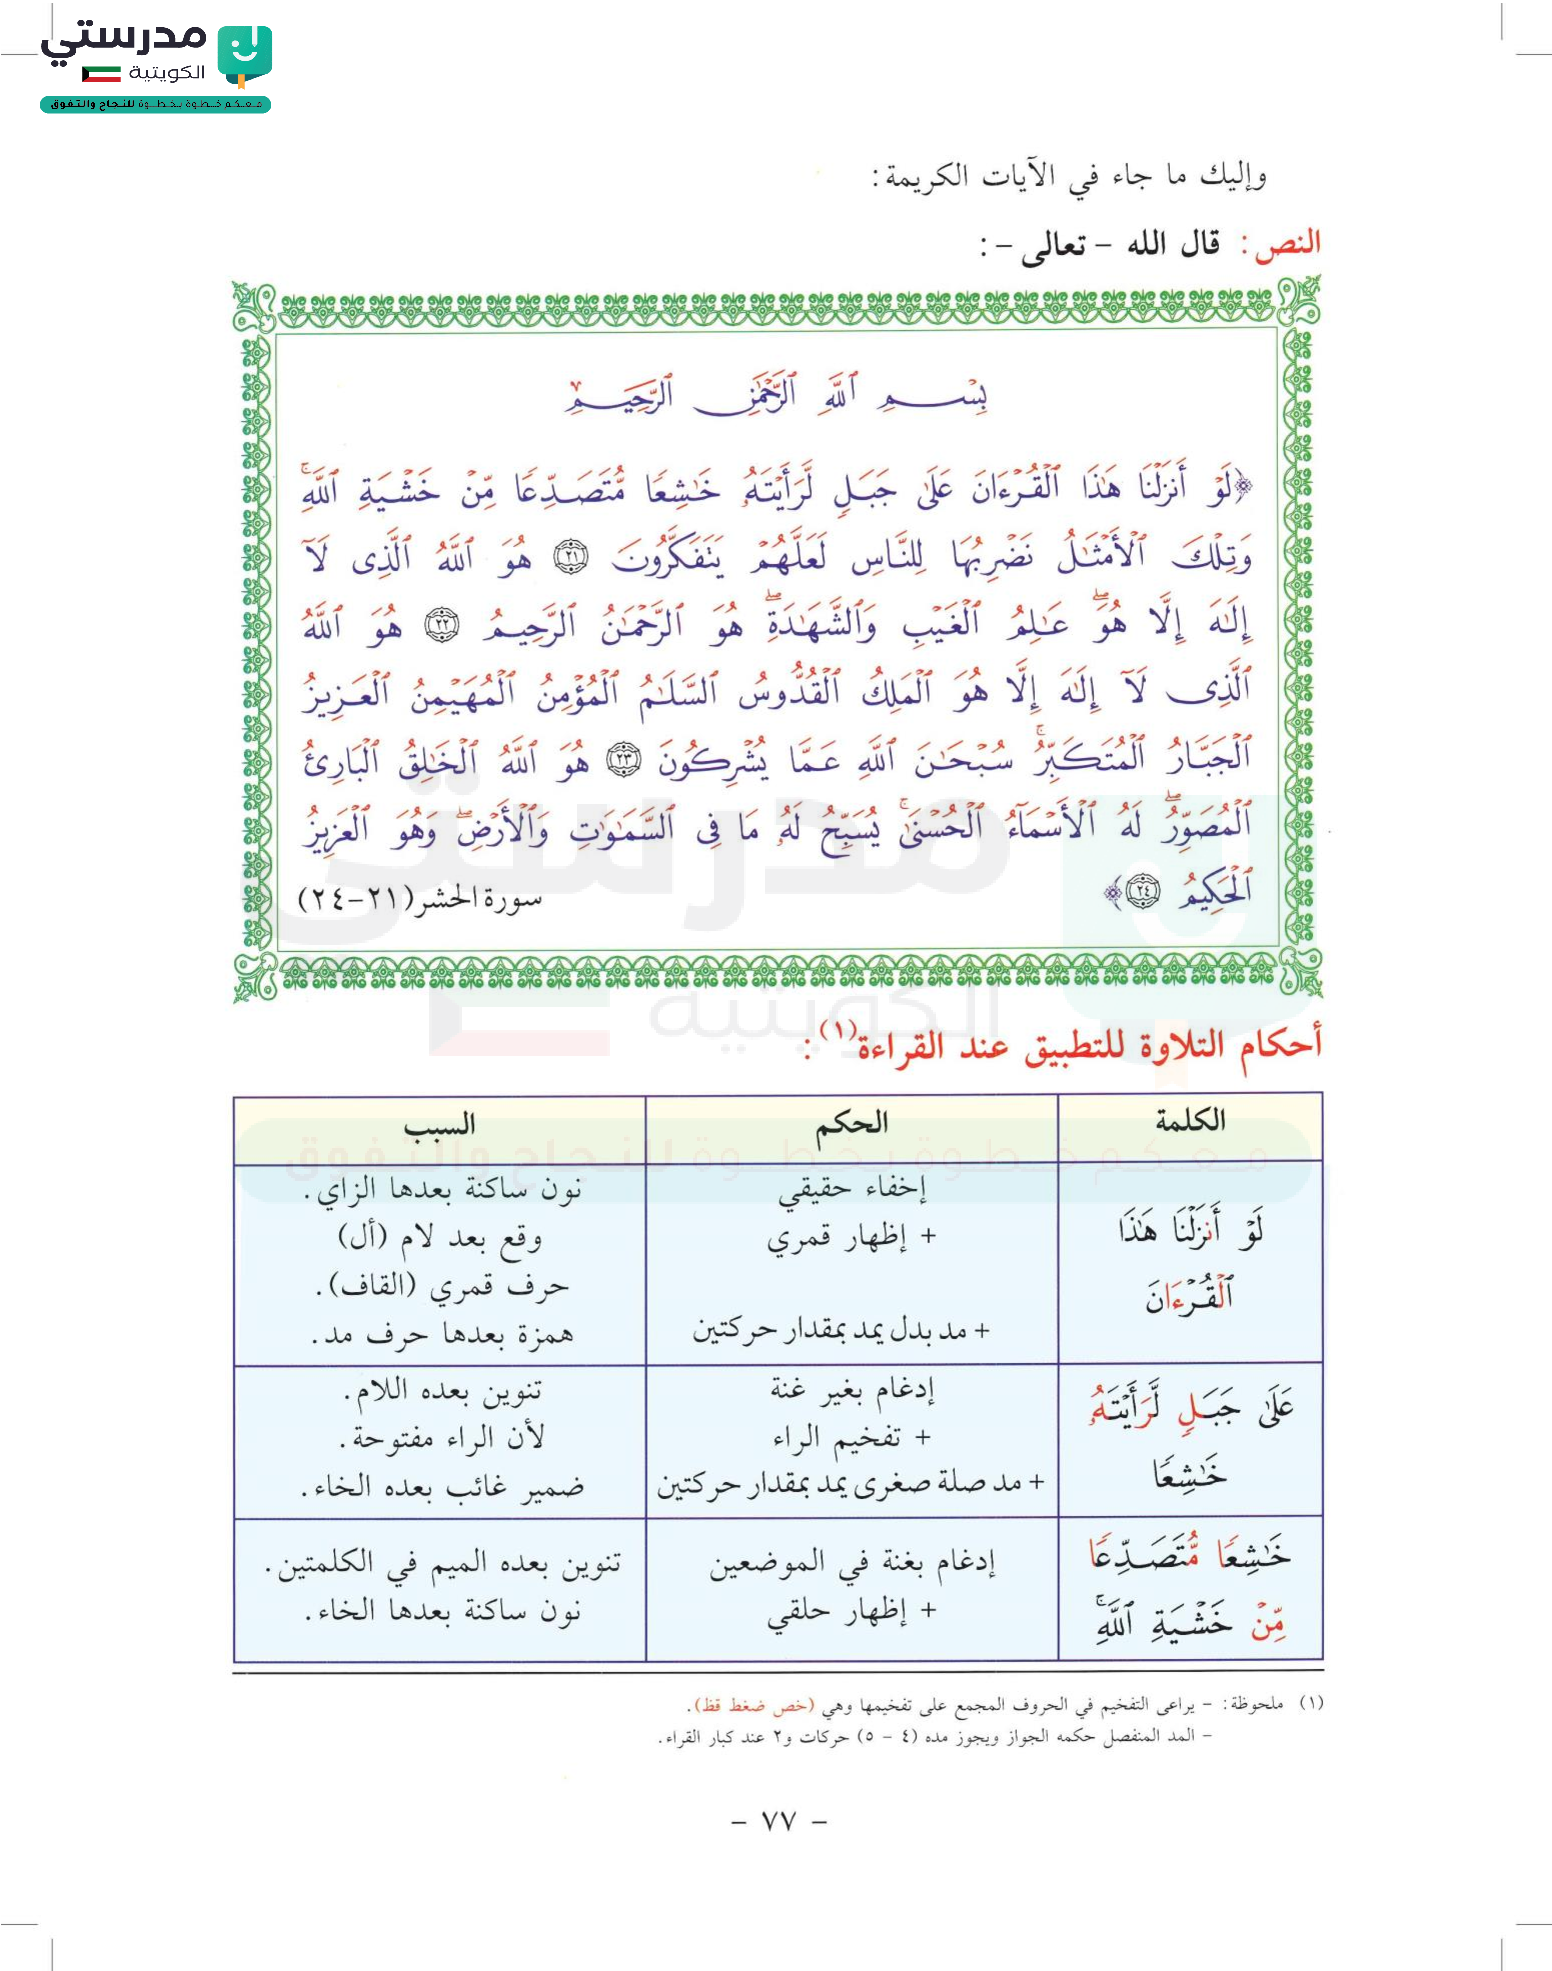 مدرستي
الكويتية
معكم خطوة بخطوة للنجاح والتفوق
وإليك ما جاء في الآيات الكريمة:
النص: قال الله - تعالى -:
بِسْمِ ٱللَّهِ ٱلرَّحْمَٰنِ ٱلرَّحِيمِ
﴿لَوْ أَنزَلْنَا هَٰذَا ٱلْقُرْءَانَ عَلَىٰ جَبَلٍ لَّرَأَيْتَهُۥ خَٰشِعًا مُّتَصَدِّعًا مِّنْ خَشْيَةِ ٱللَّهِۚ
وَتِلْكَ ٱلْأَمْثَٰلُ نَضْرِبُهَا لِلنَّاسِ لَعَلَّهُمْ يَتَفَكَّرُونَ ٢١ هُوَ ٱللَّهُ ٱلَّذِى لَآ
إِلَٰهَ إِلَّا هُوَۖ عَٰلِمُ ٱلْغَيْبِ وَٱلشَّهَٰدَةِۖ هُوَ ٱلرَّحْمَٰنُ ٱلرَّحِيمُ ٢٢ هُوَ ٱللَّهُ
ٱلَّذِى لَآ إِلَٰهَ إِلَّا هُوَ ٱلْمَلِكُ ٱلْقُدُّوسُ ٱلسَّلَٰمُ ٱلْمُؤْمِنُ ٱلْمُهَيْمِنُ ٱلْعَزِيزُ
ٱلْجَبَّارُ ٱلْمُتَكَبِّرُۚ سُبْحَٰنَ ٱللَّهِ عَمَّا يُشْرِكُونَ ٢٣ هُوَ ٱللَّهُ ٱلْخَٰلِقُ ٱلْبَارِئُ
ٱلْمُصَوِّرُۖ لَهُ ٱلْأَسْمَآءُ ٱلْحُسْنَىٰۚ يُسَبِّحُ لَهُۥ مَا فِى ٱلسَّمَٰوَٰتِ وَٱلْأَرْضِۖ وَهُوَ ٱلْعَزِيزُ
ٱلْحَكِيمُ ٢٤﴾ سورة الحشر (٢١-٢٤)
أحكام التلاوة للتطبيق عند القراءة(١):
الكلمة الحكم السبب
لَوْ أَنزَلْنَا هَٰذَا
ٱلْقُرْءَانَ
إخفاء حقيقي
+ إظهار قمري
+ مد بدل يمد بمقدار حركتين
نون ساكنة بعدها الزاي.
وقع بعد لام (أل)
حرف قمري (القاف).
همزة بعدها حرف مد.
عَلَىٰ جَبَلٍ لَّرَأَيْتَهُۥ
خَٰشِعًا
إدغام بغير غنة
+ تفخيم الراء
+ مد صلة صغرى يمد بمقدار حركتين
تنوين بعده اللام.
لأن الراء مفتوحة.
ضمير غائب بعده الخاء.
خَٰشِعًا مُّتَصَدِّعًا
مِّنْ خَشْيَةِ ٱللَّهِۚ
إدغام بغنة في الموضعين
+ إظهار حلقي
تنوين بعده الميم في الكلمتين.
نون ساكنة بعدها الخاء.
(١) ملحوظة: - يراعى التفخيم في الحروف المجمع على تفخيمها وهي (خص ضغط قظ).
- المد المنفصل حكمه الجواز ويجوز مده (٤ - ٥) حركات و٢ عند كبار القراء.
- ٧٧ -